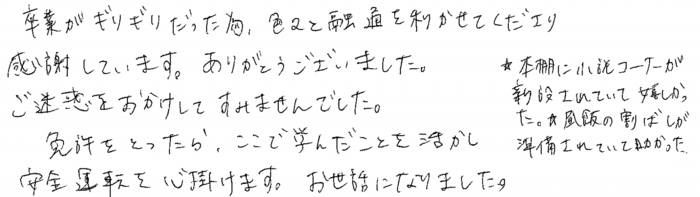 卒業がギリギリだった為、色々と融通を利かせてくださり
感謝しています。ありがとうございました。
ご迷惑をおかけしてすみませんでした。
免許をとったら、ここで学んだことを活かし
安全運転を心掛けます。お世話になりました。
★本棚に小説コーナーが
新設されていて嬉しかっ
た。★夙飯の割ばしが
準備されていて助かった